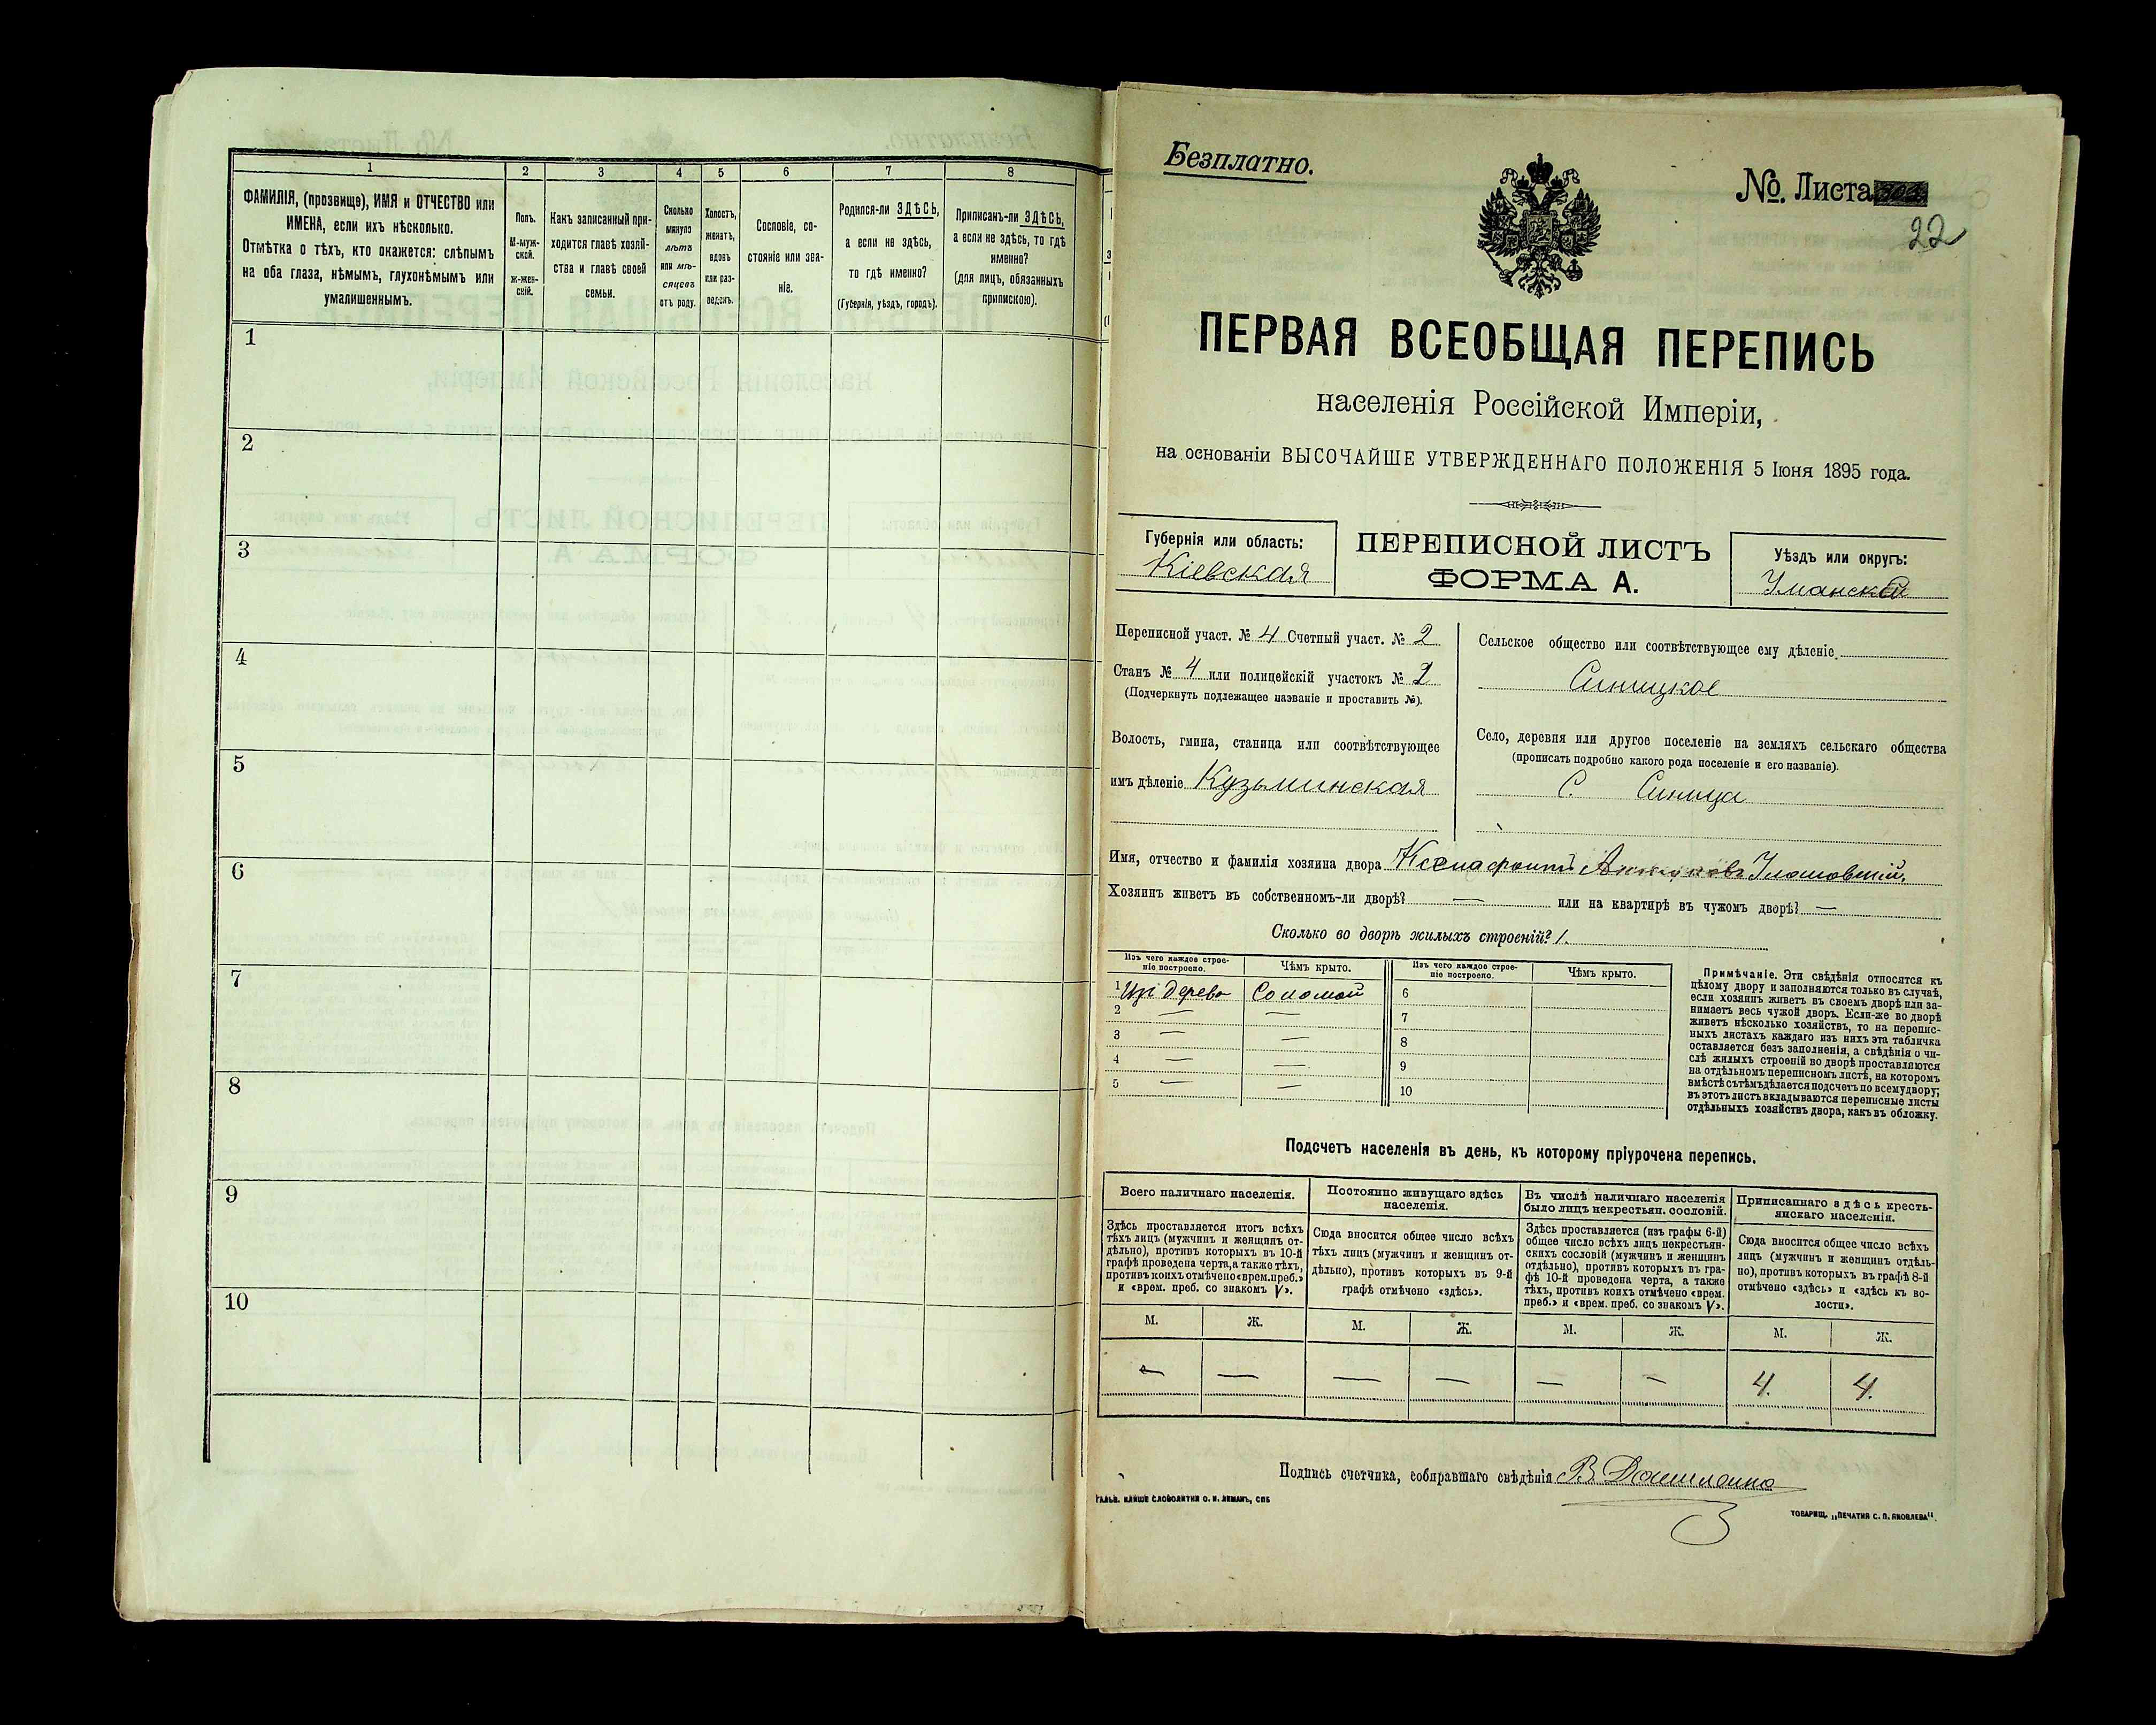 1
ФАМИЛІЯ, (прозвище), ИМЯ и ОТЧЕСТВО или
ИМЕНА, если ихъ нѣсколько.
Отмѣтка о тѣхъ, кто окажется: слѣпымъ
на оба глаза, нѣмымъ, глухонѣмымъ или
умалишеннымъ.
2
Полъ.
М-муж-
ской.
Ж-жен-
скій.
3
Какъ записанный при-
ходится главѣ хозяй-
ства и главѣ своей
семьи.
4
Сколько
минуло
лѣтъ
или мѣ-
сяцевъ
отъ роду.
5
Холостъ,
женатъ,
вдовъ
или раз-
веденъ.
6
Сословіе, со-
стояніе или зва-
ніе.
7
Родился-ли ЗДѢСЬ,
а если не здѣсь,
то гдѣ именно?
(Губернія, уѣздъ, городъ).
8
Приписанъ-ли ЗДѢСЬ,
а если не здѣсь, то гдѣ
именно?
(для лицъ, обязанныхъ
припискою).
1
2
3
4
5
6
7
8
9
10
Безплатно.
№. Листа
22
ПЕРВАЯ ВСЕОБЩАЯ ПЕРЕПИСЬ
населенія Россійской Имперіи,
на основаніи ВЫСОЧАЙШЕ УТВЕРЖДЕННАГО ПОЛОЖЕНІЯ 5 Іюня 1895 года.
Губернія или область:
Кіевская
ПЕРЕПИСНОЙ ЛИСТЪ
ФОРМА А.
Уѣздъ или округъ:
Уманскій
Переписной участ. № 4 Счетный участ. № 2
Станъ № 4 или полицейскій участокъ № 2
(Подчеркнуть подлежащее названіе и проставить №).
Волость, гмина, станица или соотвѣтствующее
имъ дѣленіе Кузьминская
Сельское общество или соотвѣтствующее ему дѣленіе
Синицкое
Село, деревня или другое поселеніе на земляхъ сельскаго общества
(прописать подробно какого рода поселеніе и его названіе).
С. Синица
Имя, отчество и фамилія хозяина двора
Хозяинъ живетъ въ собственномъ-ли дворѣ? — или на квартирѣ въ чужомъ дворѣ? —
Сколько во дворѣ жилыхъ строеній? 1.
Изъ чего каждое строе-
ніе построено.
Чѣмъ крыто.
Изъ чего каждое строе-
ніе построено.
Чѣмъ крыто.
1 Изъ дерева Соломой 6
2 — — 7
3 — — 8
4 — — 9
5 — — 10
Примѣчаніе. Эти свѣдѣнія относятся къ
цѣлому двору и заполняются только въ случаѣ,
если хозяинъ живетъ въ своемъ дворѣ или за-
нимаетъ весь чужой дворъ. Если-же во дворѣ
живетъ нѣсколько хозяйствъ, то на перепис-
ныхъ листахъ каждаго изъ нихъ эта табличка
оставляется безъ заполненія, а свѣдѣнія о чи-
слѣ жилыхъ строеній во дворѣ проставляются
на отдѣльномъ переписномъ листѣ, на которомъ
вмѣстѣ съ тѣмъ дѣлается подсчетъ по всему двору;
въ этотъ листъ вкладываются переписные листы
отдѣльныхъ хозяйствъ двора, какъ въ обложку.
Подсчетъ населенія въ день, къ которому пріурочена перепись.
Всего наличнаго населенія.
Здѣсь проставляется итогъ всѣхъ
тѣхъ лицъ (мужчинъ и женщинъ от-
дѣльно), противъ которыхъ въ 10-й
графѣ проведена черта, а также тѣхъ,
противъ коихъ отмѣчено «врем. преб.»
и «врем. преб. со знакомъ V».
Постоянно живущаго здѣсь
населенія.
Сюда вносится общее число всѣхъ
тѣхъ лицъ (мужчинъ и женщинъ от-
дѣльно), противъ которыхъ въ 9-й
графѣ отмѣчено «здѣсь».
Въ числѣ наличнаго населенія
было лицъ некрестьян. сословій.
Здѣсь проставляется (изъ графы 6-й)
общее число всѣхъ лицъ некрестьян-
скихъ сословій (мужчинъ и женщинъ
отдѣльно), противъ которыхъ въ гра-
фѣ 10-й проведена черта, а также
тѣхъ, противъ коихъ отмѣчено «врем.
преб.» и «врем. преб. со знакомъ V».
Приписаннаго здѣсь кресть-
янскаго населенія.
Сюда вносится общее число всѣхъ
лицъ (мужчинъ и женщинъ отдѣль-
но), противъ которыхъ въ графѣ 8-й
отмѣчено «здѣсь» и «здѣсь къ во-
лости».
М. Ж. М. Ж. М. Ж. М. Ж.
— — — — — — 4. 4.
Подпись счетчика, собиравшаго свѣдѣнія В.
ГАЛЬВ. КЛИШЕ СЛОВОЛИТНИ О. И. ЛЕМАНЪ, СПБ
ТОВАРИЩ. „ПЕЧАТНЯ С. П. ЯКОВЛЕВА“.